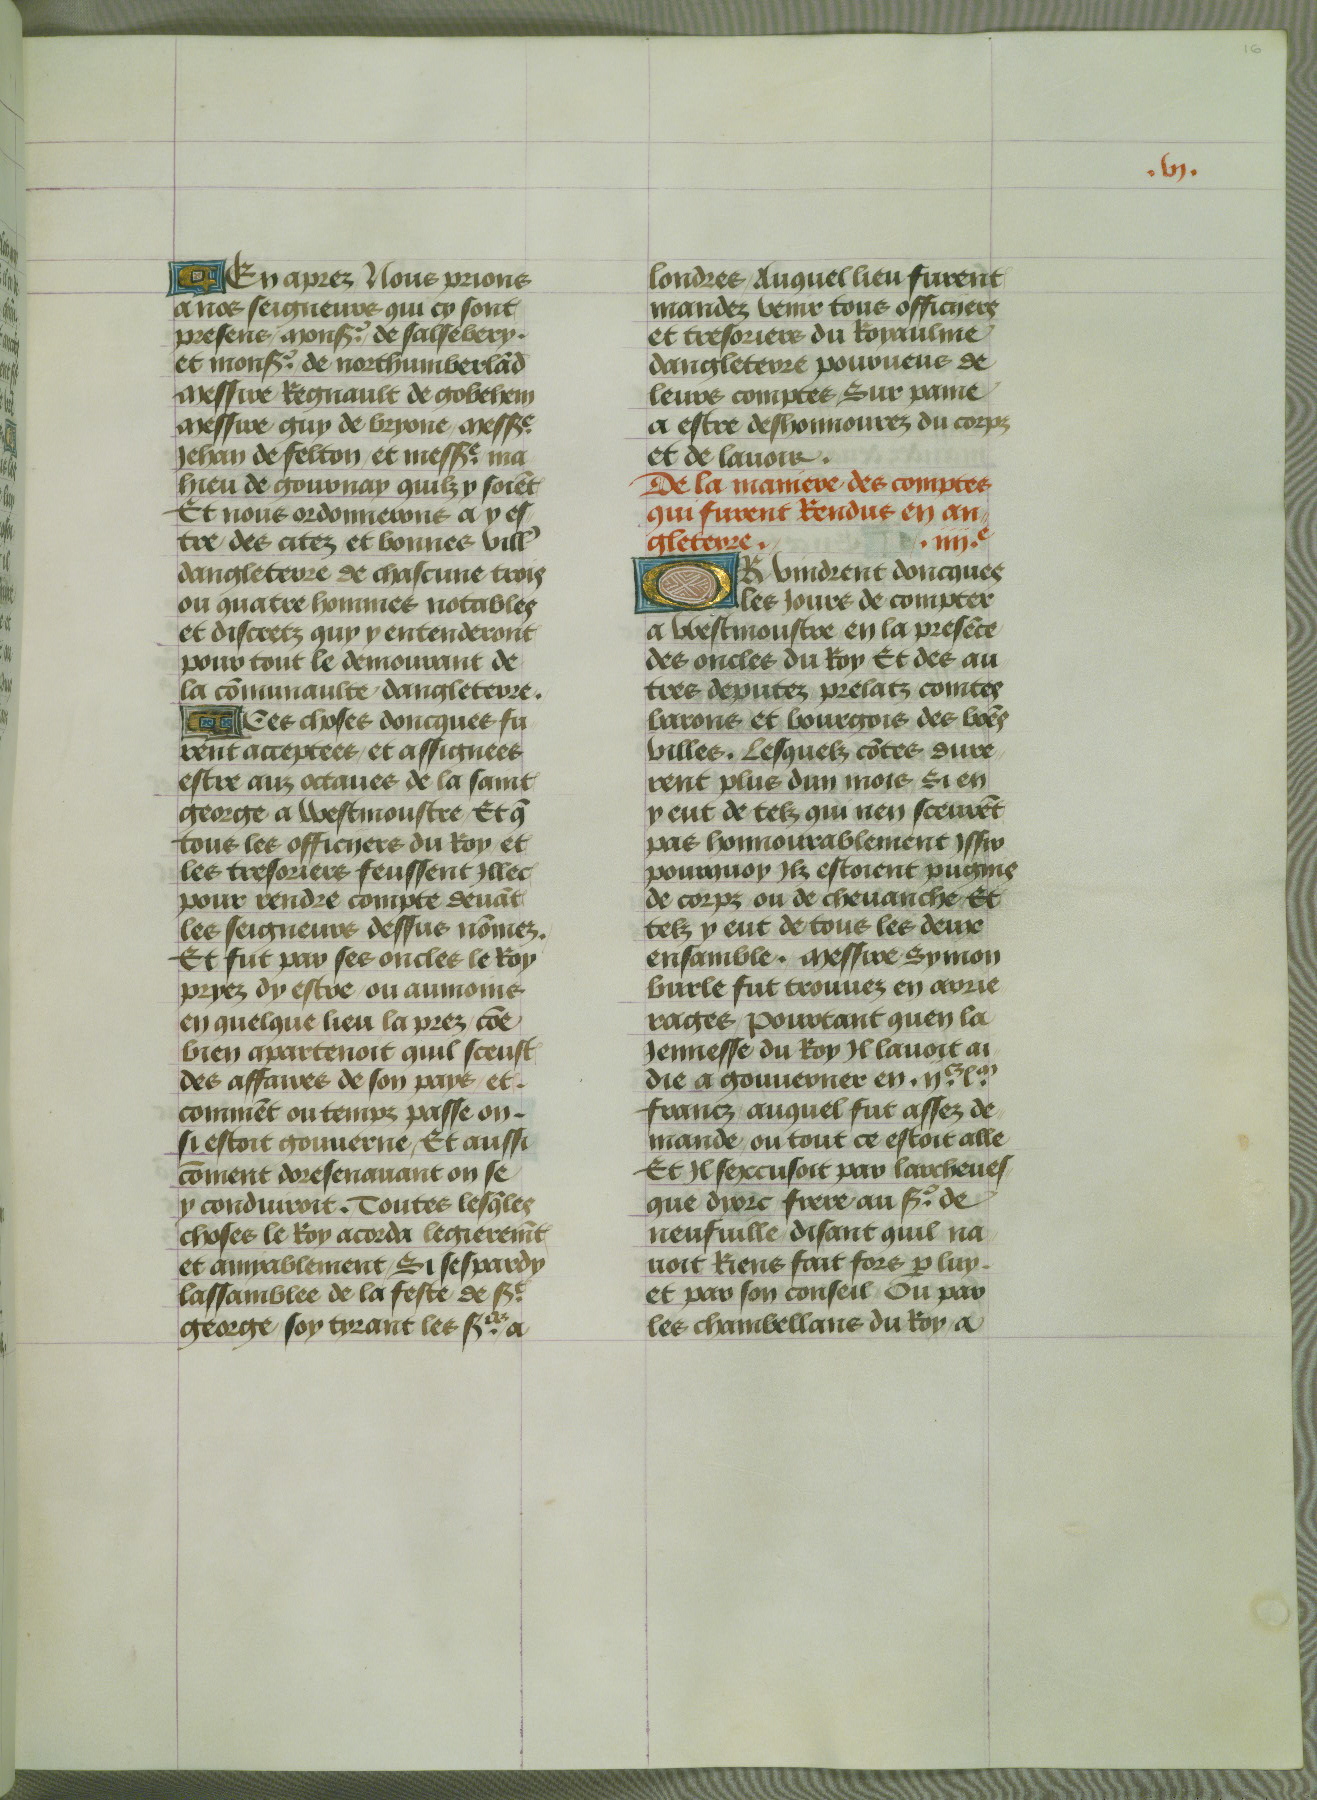 16
.vj.
En aprez Nous prions
a nos seigneurs qui cy sont
presens / monsr de salsebery.
et monsr de northumberlãd
messire Regnault de gobehem
messire guy de bryone messre
Jehan de felton et messre ma
hieu de gournay quilz y soiẽt
Et nous ordonnerons a y es
tre des citez et bonnes vill'
dangleterre de chascune trois
ou quatre hommes notables
et discretz quy y entenderont
pour tout le demourant de
la cõmunaulte dangleterre.
Ces choses doncques fu
rent acceptees et assignees
estre aux octaues de la saint
george a westmoustre Et q̃
tous les officyers du Roy et
les tresoriers feussent Jllec
pour rendre compte deuãt
les seigneurs dessus nõmez.
Et fut par ses oncles le Roy
pryez dy estre ou aumoins
en quelque lieu la prez cõe
bien apartenoit quil sceust
des affaires de son pays et.
commẽt ou temps passe on.
si estoit gouuerne / Et aussi
cõment doresenauant on se
y conduiroit. Toutes lesq̃les
choses le Roy acorda legieremẽt
et amyablement / Si sespardy
lassamblee de la feste de st
george / soy tyrant les srs a
londres / Auquel lieu furent
mandez venir tous officyers
et tresoriers du Royaulme
dangleterre pourueus de
leurs comptes / Sur paine
a estre deshonnourez du corps
et de lauoir.
De la maniere des comptes
qui furent Rendus en an
gleterre. .iiij.e
OR vindrent doncques
les Jours de compter
a westmoustre en la presẽce
des oncles du Roy Et des au
tres deputez prelatz comtes
barons et bourgois des bõẽs
villes. Lesquelz cõtes dure
rent plus dun mois / Si en
y eut de telz qui nen sceurẽt
pas honnourablement Jssir
pourquoy Jlz estoient pugnis
de corps ou de cheuanche Et
telz y eut de tous les deux
ensamble. Messire Symon
burle fut trouuez en arrie
rages / Pourtant quen la
Jennesse du Roy Jl lauoit ai
die a gouuerner en .ij.c l.m
francz / auquel fut assez de
mande / ou tout ce estoit alle
Et Jl sexcusoit par larcheues
que dyorc frere au sr de
neufuille / disant quil na
uoit Riens fait fors p luy.
et par son conseil Ou par
les chambellans du Roy a